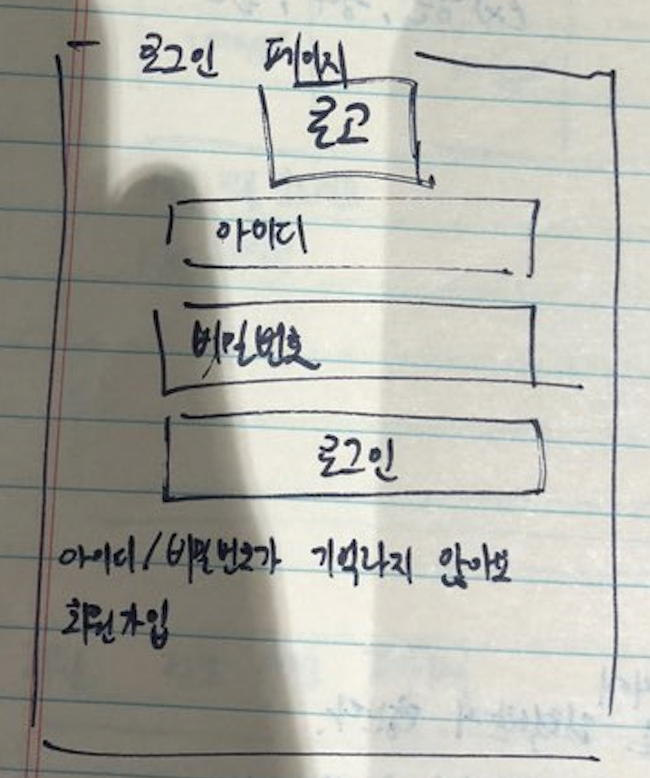 로그인 페이지
로고
아이디
비밀번호
로그인
아이디/비밀번호가 기억나지 않아요
회원가입